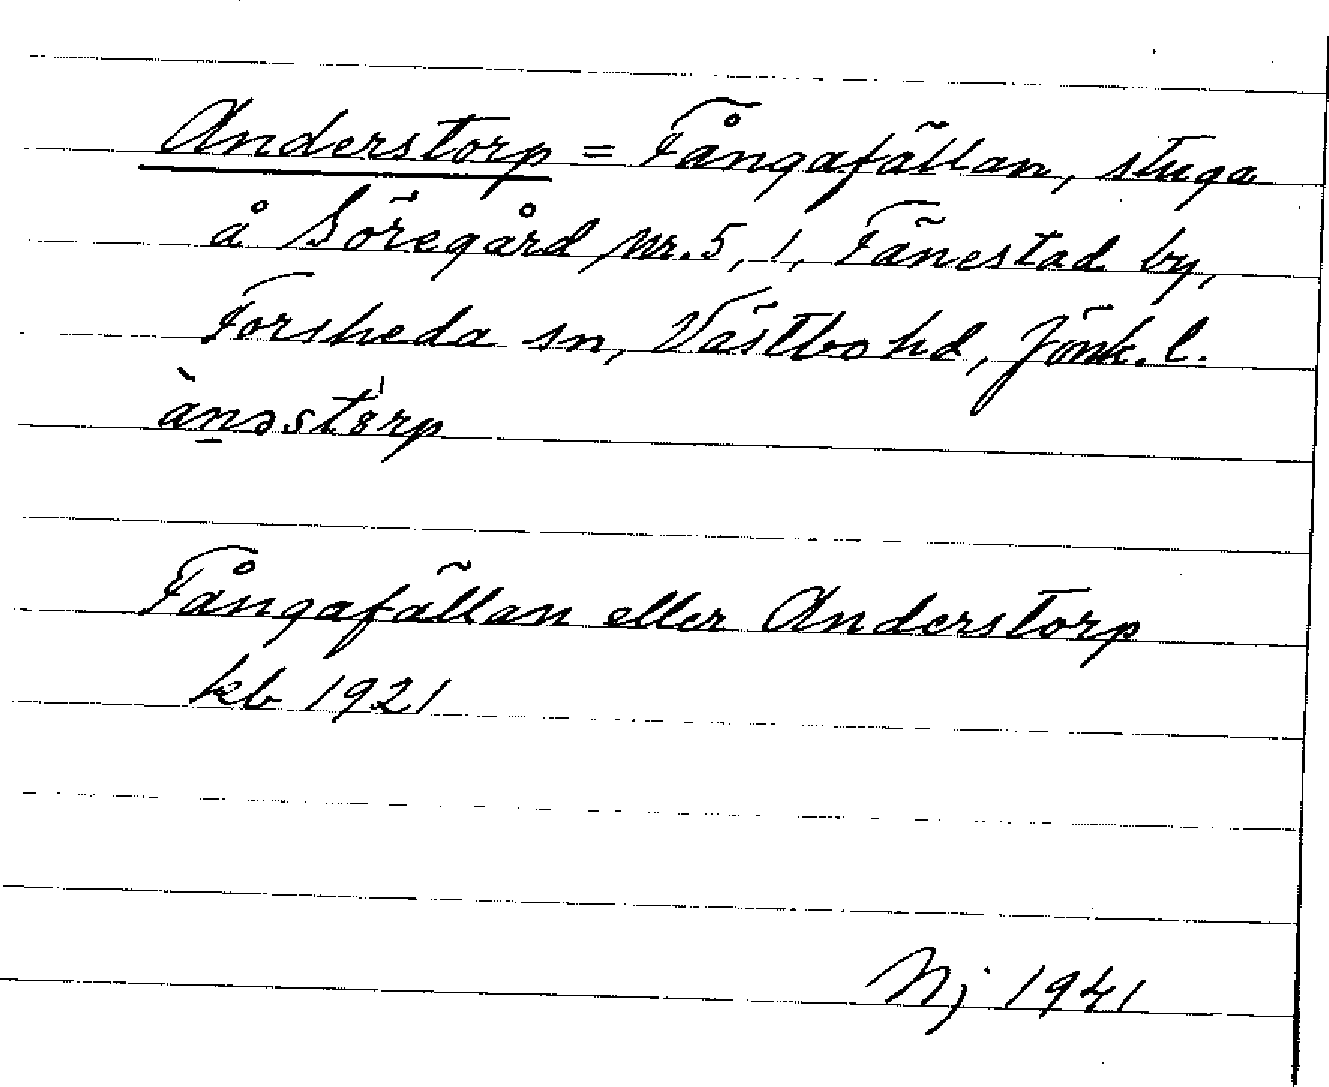 Anderstorp = Fångafällan, stuga
å Söregård Nr. 5, 1, Fänestad by,
Forsheda sn, Västbo hd, Jönk. l.
ànəstörp
Fångafällan eller Anderstorp
kb 1921
Nj 1941